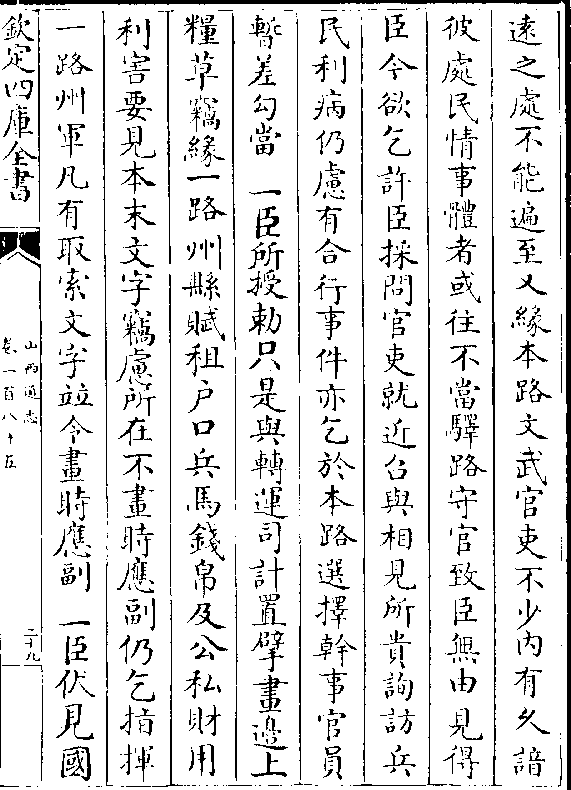 逺之處不能遍至又緣本路文武官吏不少内有久諳
彼處民情事體者或往不當驛路守官致臣無由見得
臣今欲乞許臣採問官吏就近台與相見所貴詢訪兵
民利病仍慮有合行事件亦乞於本路選擇幹事官員
暫差勾當 一臣所授勅只是與轉運司計置擘畫邉上
糧草竊緣一路州縣賦租戶口兵馬錢帛及公私財用
利害要見本末文字竊慮所在不畫時應副仍乞指揮
一路州軍凡有取索文字竝令畫時應副 一臣伏見國
欽定四庫全書
山西通志
卷一百八十五
二十九